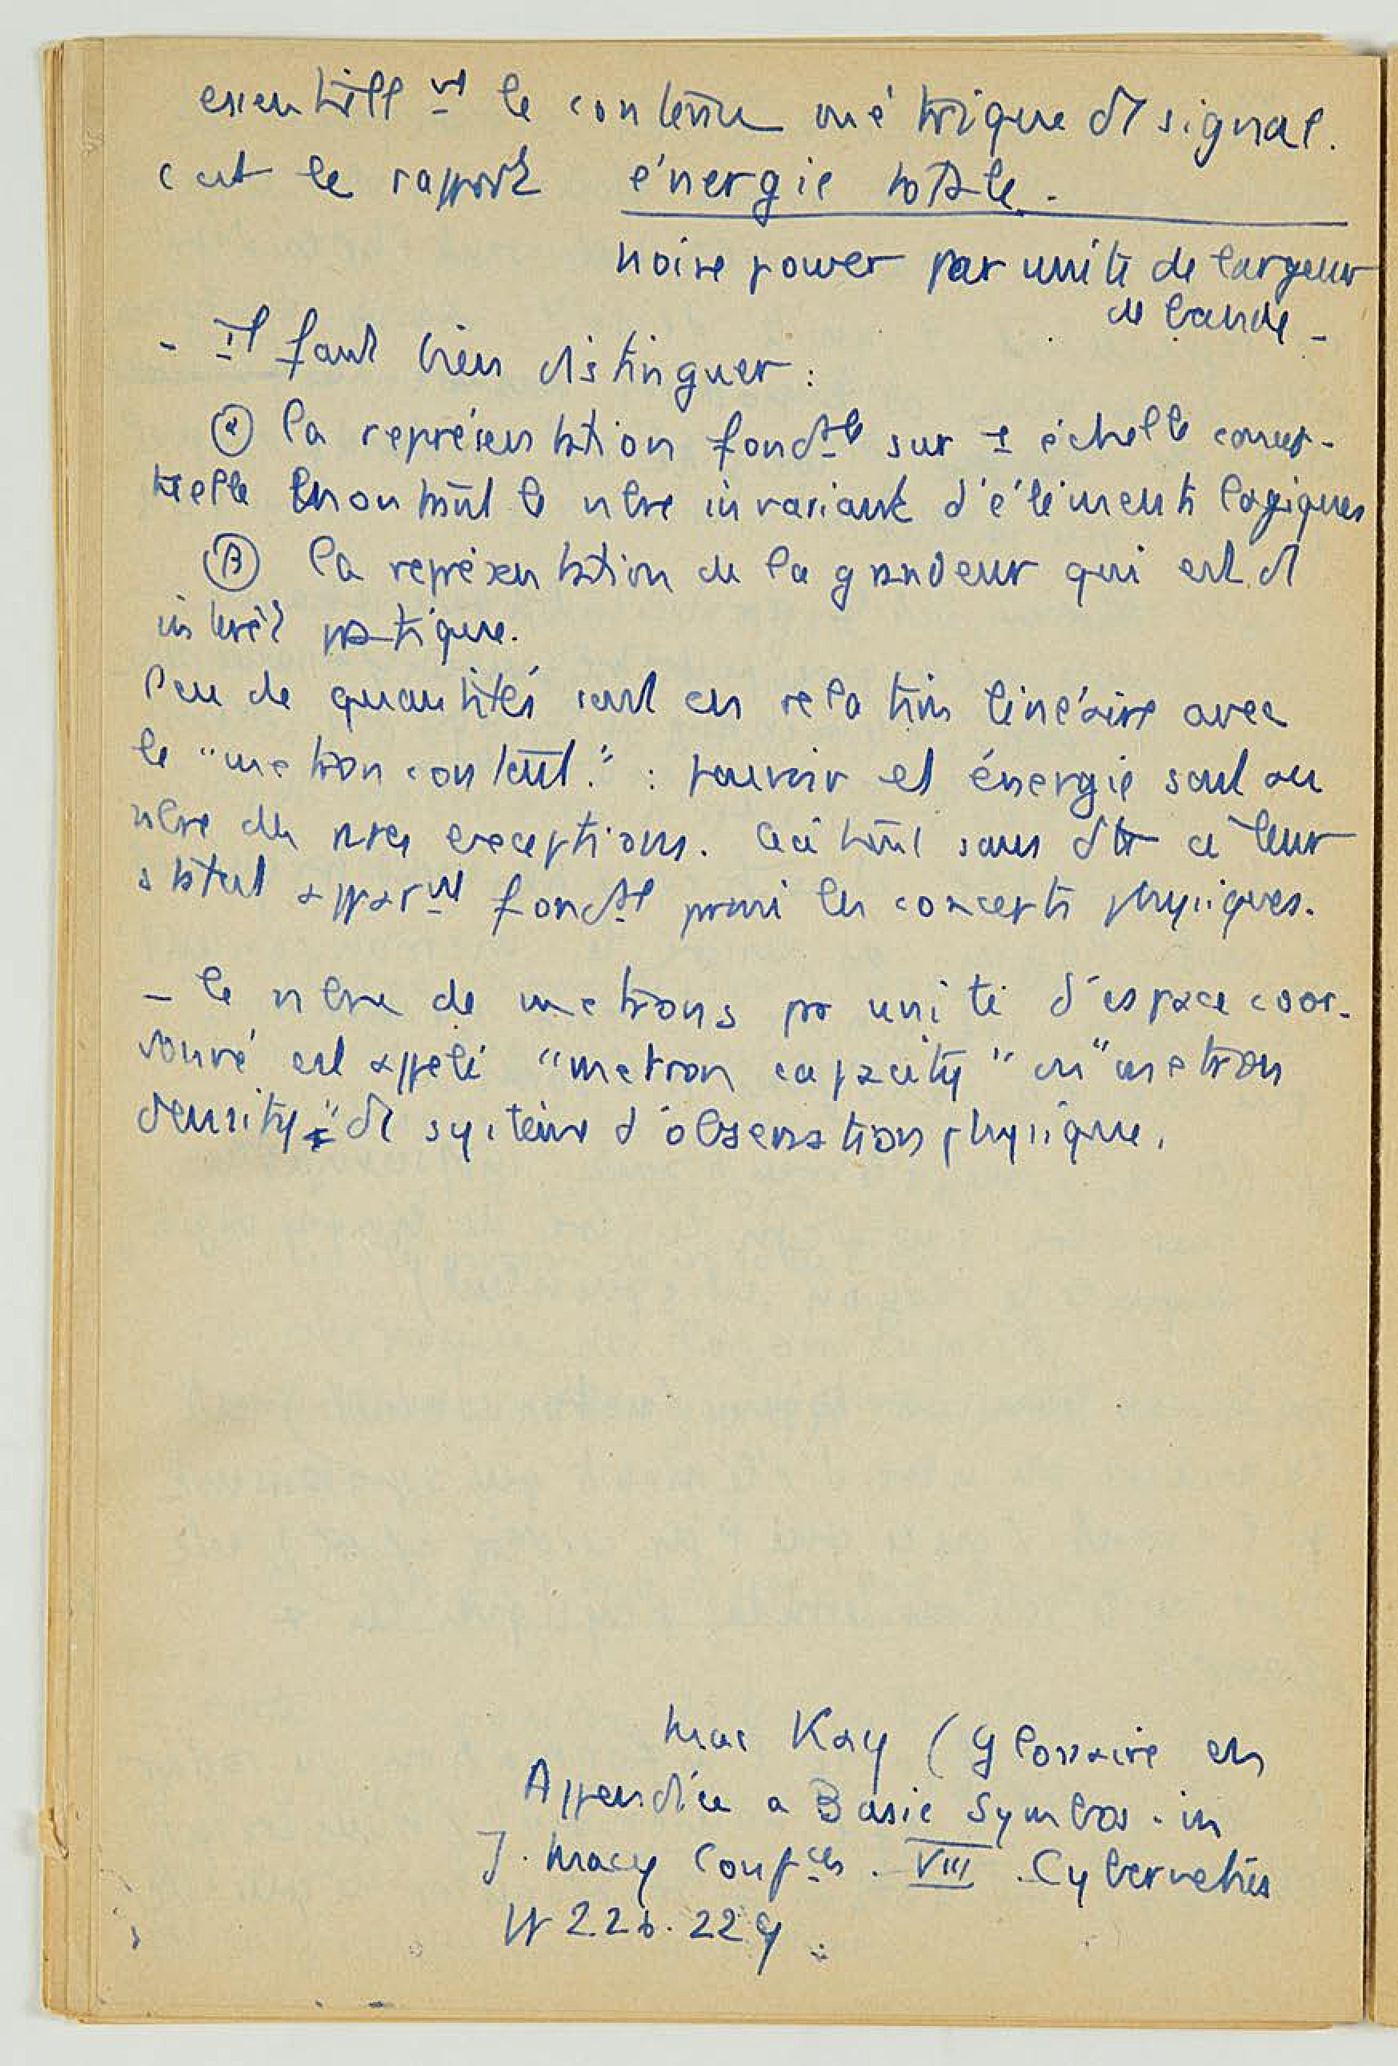 essentiellᵗ le contenu métrique d'1 signal.
c'est le rapport énergie totale.
noise power par unité de largeur
de bande -
- Il faut bien distinguer :
α la représentation fondᵃˡᵉ sur 1 échelle concep-
tuelle montrant le nbre invariant d'éléments logiques
β la représentation de la grandeur qui est d'
intérêt pratique.
Peu de quantités sont en relation linéaire avec
le "metron content." : pouvoir et énergie sont au
nbre des rares exceptions. Ceci tient sans dte à leur
statut apparᵗ fondᵃˡ parmi les concepts physiques.
- le nbre de metrons par unité d'espace coor-
donné est appelé "metron capacity" ou "metron
density" d'1 système d'observation physique.
Mac Kay (Glossaire en
Appendice a Basic Symbos. in
J. Macy Confᶜᵉˢ. VIII. Cybernetics
pp 226. 229